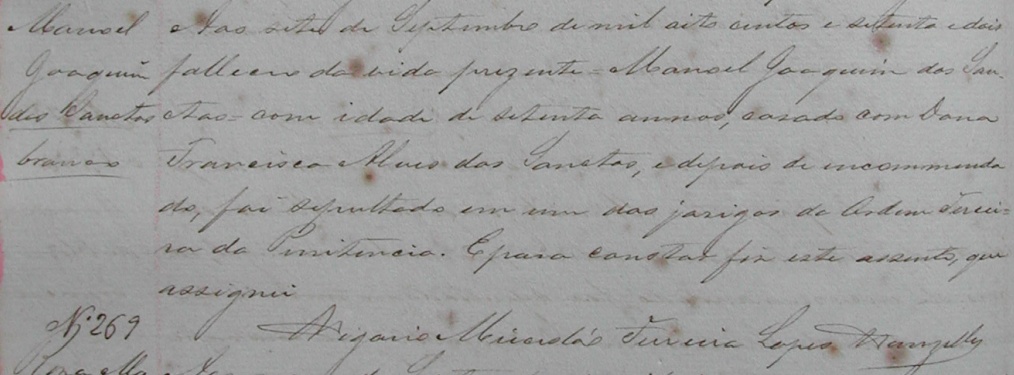 Manoel
Joaquim
dos Sanctos
branco
Aos sete de Septembro de mil oito centos e setenta e dois
falleceo da vida prezente = Manoel Joaquim dos San-
ctos = com idade de setenta annos, casado com Dona
Francisca Alves dos Sanctos, e depois de encommenda
do, foi sepultado em um dos jasigos da Ordem Tercei-
ra da Penitencia. E para constar fiz este assento, que
assignei
O Vigario Ferreira Lopes
Nº 269